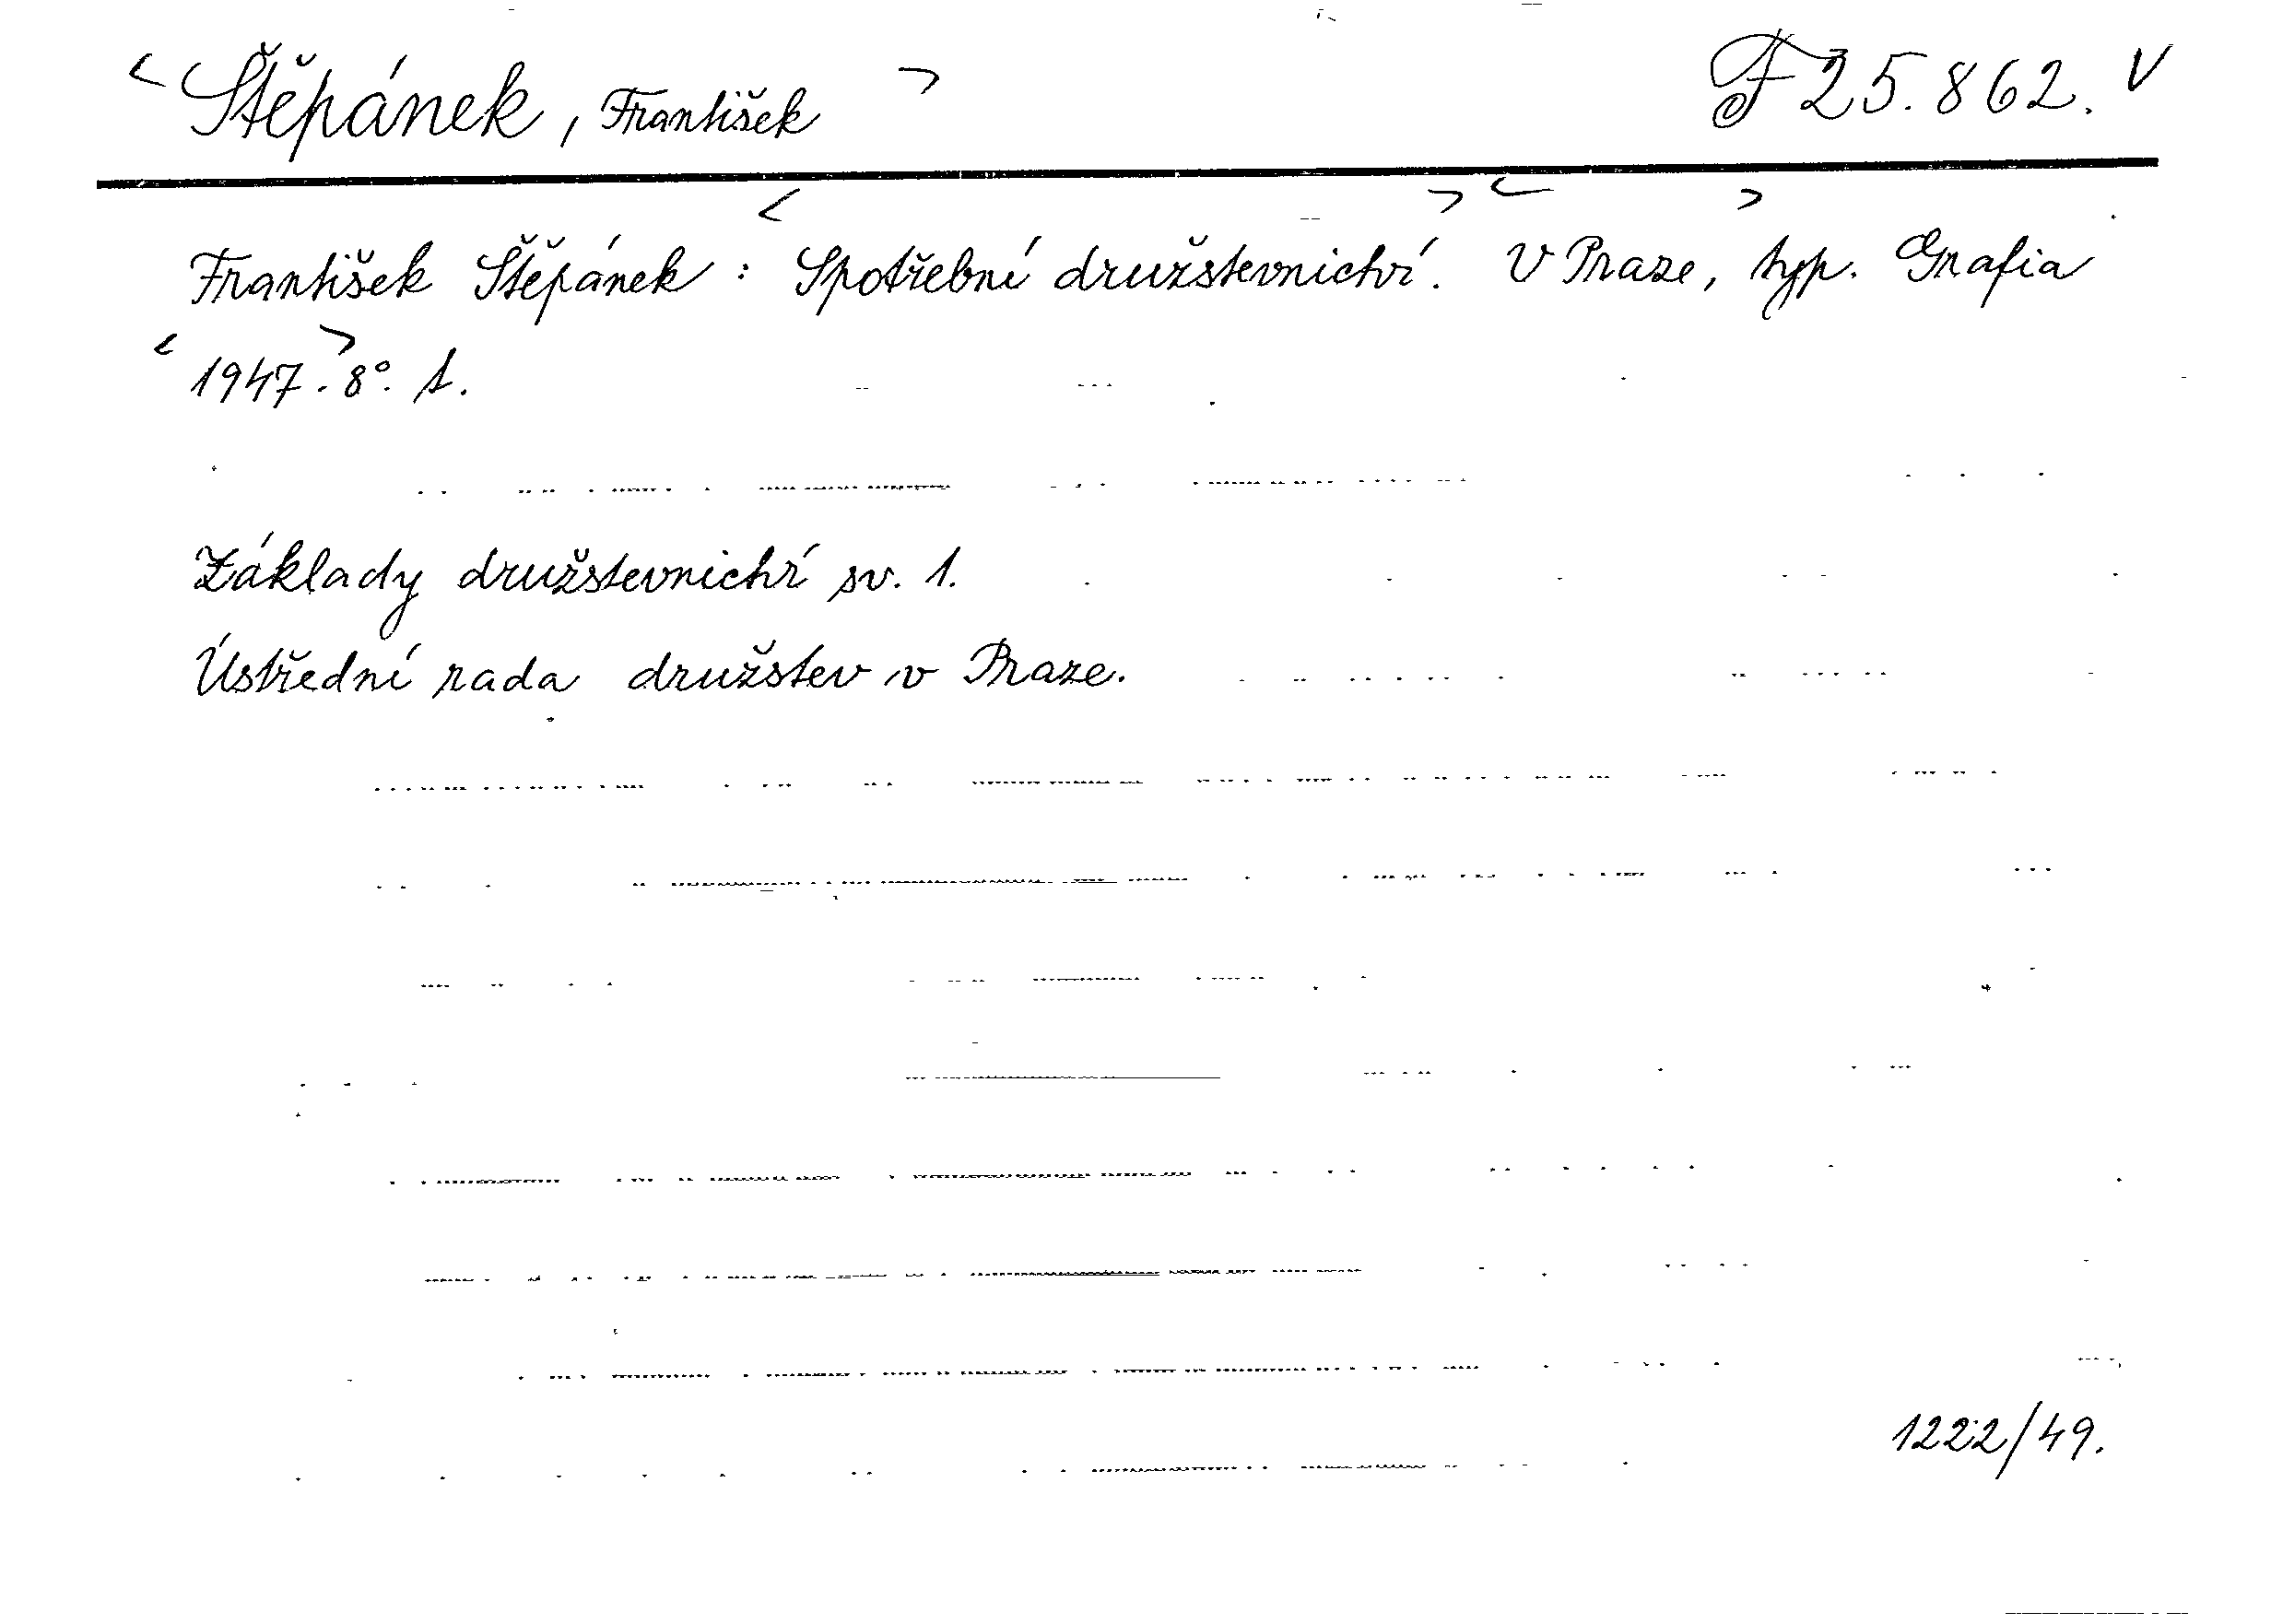 < Štěpánek, František > F 25.862. V
František Štěpánek : < Spotřební družstevnictví. > < V Praze, > typ. Grafia
< 1947. > 8°. 1.
Základy družstevnictví sv. 1.
Ústřední rada družstev v Praze.
1222/49.